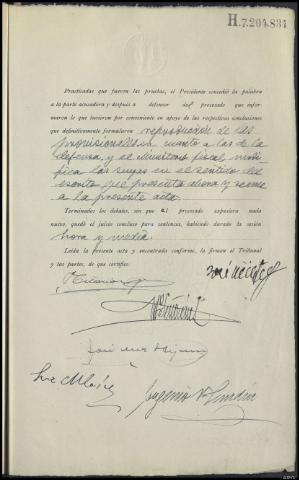 H.7.204.834
Practicadas que fueron las pruebas, el Presidente concedió la palabra
a la parte acusadora y después a defensor del procesado que infor-
maron lo que tuvieron por conveniente en apoyo de las respectivas conclusiones
que definitivamente formularon reproduccion de las
provisionales en cuanto a las de la
defensa, y el Ministerio fiscal modi-
fica las suyas en el sentido del
escrito que presenta ahora y se une
a la presente acta
Terminados los debates, sin que el procesado expusiera nada
nuevo, quedó el juicio concluso para sentencia, habiendo durado la sesión
hora y media
Leída la presente acta y encontrada conforme, la firman el Tribunal
y las partes, de que certifico.
Eugenio